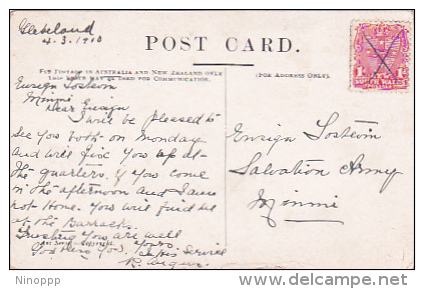 4.3.1910
POST CARD.
FOR POSTAGE IN AUSTRALIA AND NEW ZEALAND ONLY
THIS SPACE MAY BE USED FOR COMMUNICATION.
(FOR ADDRESS ONLY).
Ensign Lostevin
Minmi
Dear Ensign
I will be pleased to
see you both on Monday
and will fix you up at
the quarters. If you come
in the afternoon and I am
not Home. You will find me
at the Barracks.
Trusting you are well
God bless you. Yours
in His Service
Ensign Lostevin
Salvation Army
Minmi
Ninoppp
delcampe.net